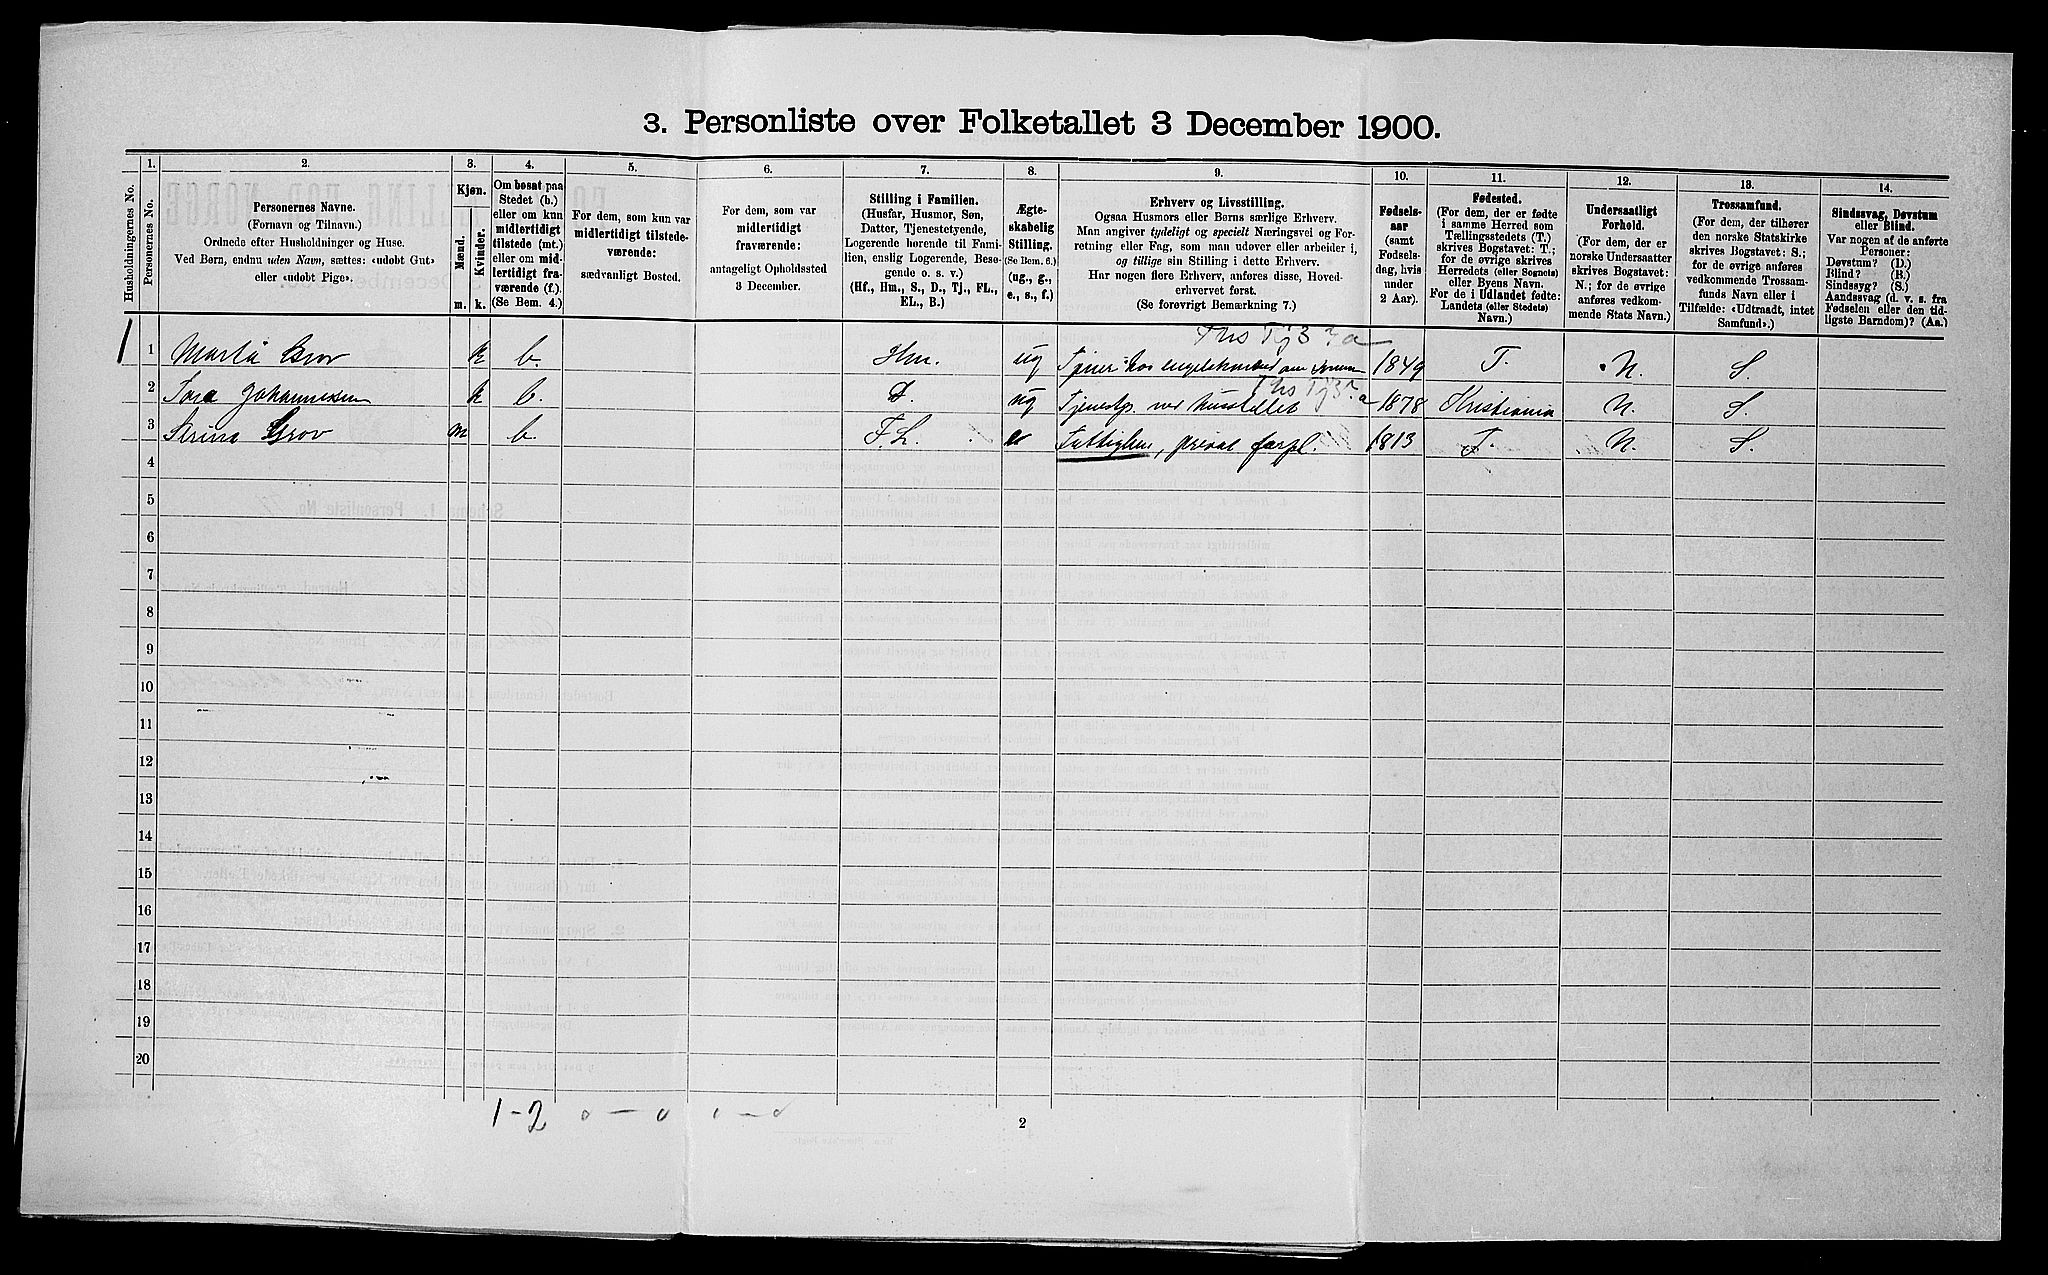 3. Personliste over Folketallet 3 December 1900.
1. 2. 3. 4. 5. 6. 7. 8. 9. 10. 11. 12. 13. 14.
Husholdningernes No.
Personernes No.
Personernes Navne.
(Fornavn og Tilnavn.)
Ordnede efter Husholdninger og Huse.
Ved Børn, endnu uden Navn, sættes: «udobt Gut»
eller «udobt Pige».
Kjøn.
Mænd.
Kvinder.
m. k.
Om bosat paa
Stedet (b.)
eller om kun
midlertidigt
tilstede (mt.)
eller om mid-
lertidigt fra-
værende (f.)
(Se Bem. 4.)
For dem, som kun var
midlertidigt tilstede-
værende:
sædvanligt Bosted.
For dem, som var
midlertidigt
fraværende:
antageligt Opholdssted
3 December.
Stilling i Familien.
(Husfar, Husmor, Søn,
Datter, Tjenestetyende,
Logerende hørende til Fami-
lien, enslig Logerende, Besø-
gende o. s. v.)
(Hf., Hm., S., D., Tj., FL.,
EL., B.)
Ægte-
skabelig
Stilling.
(Se Bem. 6.)
(ug., g.,
e., s., f.)
Erhverv og Livsstilling.
Ogsaa Husmors eller Børns særlige Erhverv.
Man angiver tydeligt og specielt Næringsvei og For-
retning eller Fag, som man udøver eller arbeider i,
og tillige sin Stilling i dette Erhverv.
Har nogen flere Erhverv, anføres disse, Hoved-
erhvervet først.
(Se forøvrigt Bemærkning 7.)
Fødsels-
aar
(samt
Fødsels-
dag, hvis
under
2 Aar).
Fødested.
(For dem, der er fødte
i samme Herred som
Tællingsstedets (T.)
skrives Bogstavet: T.;
for de øvrige skrives
Herredets (eller Sognets)
eller Byens Navn.
For de i Udlandet fødte:
Landets (eller Stedets)
Navn.)
Undersaatligt
Forhold.
(For dem, der er
norske Undersaatter
skrives Bogstavet:
N.; for de øvrige
anføres vedkom-
mende Stats Navn.)
Trossamfund.
(For dem, der tilhører
den norske Statskirke
skrives Bogstavet: S.;
for de øvrige anføres
vedkommende Trossam-
funds Navn eller i
Tilfælde: «Udtraadt, intet
Samfund».)
Sindssvag, Døvstum
eller Blind.
Var nogen af de anførte
Personer:
Døvstum? (D.)
Blind? (B.)
Sindssyg? (S.)
Aandssvag (d. v. s. fra
Fødselen eller den tid-
ligste Barndom)? (Aa.)
1 1 Marta Grov k b. Hm. ug 1849 T. N. S.
2 Tora Johannessen k b. D. ug 1878 Kristiania N. S.
3 Grov m b F. L. e privat 1813 T. N. S.
4
5
6
7
8
9
10
11
12
13
14
15
16
17
18
19
20
1-2 0-0 0-0
2